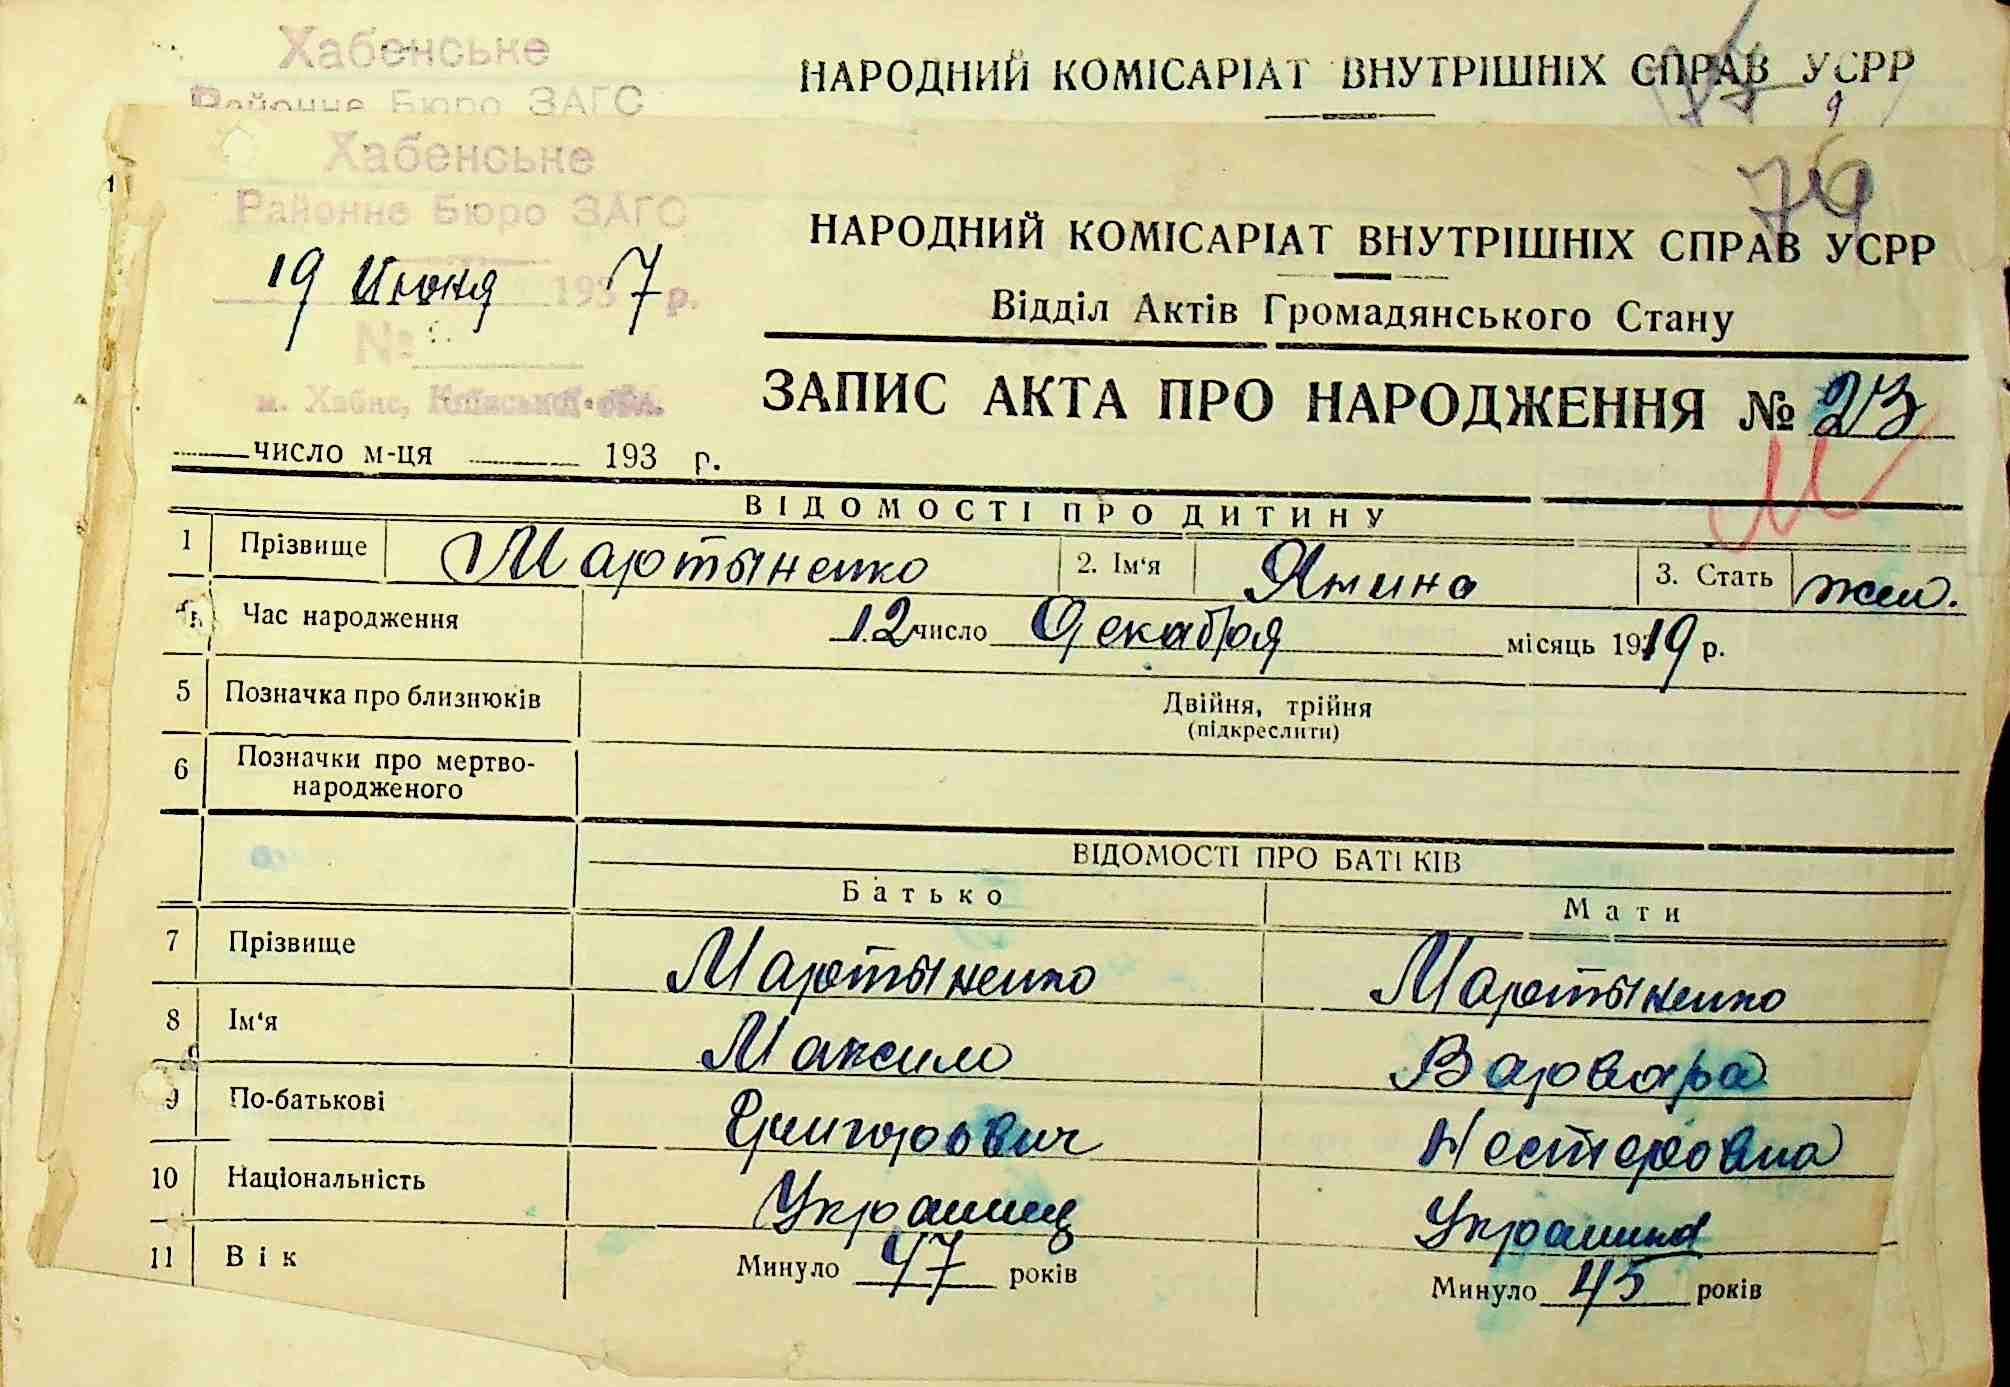 Хабенське
Районне Бюро ЗАГС
НАРОДНИЙ КОМІСАРІАТ ВНУТРІШНІХ СПРАВ УСРР
9
Хабенське
Районне Бюро ЗАГС
79
НАРОДНИЙ КОМІСАРІАТ ВНУТРІШНІХ СПРАВ УСРР
19 Июня 1937 р.
Відділ Актів Громадянського Стану
№
м. Хабне, Київської обл.
ЗАПИС АКТА ПРО НАРОДЖЕННЯ № 23
число м-ця 193 р.
ВІДОМОСТІ ПРО ДИТИНУ
1 Прізвище Мартыненко 2. Ім'я Янина 3. Стать жен.
Час народження 12 число Декабря місяць 1919 р.
5 Позначка про близнюків Двійня, трійня
(підкреслити)
6 Позначки про мертво-
народженого
ВІДОМОСТІ ПРО БАТЬКІВ
Батько Мати
7 Прізвище Мартыненко Мартыненко
8 Ім'я Максим Варвара
9 По-батькові Григорович Нестеровна
10 Національність Украинец Украинка
11 Вік Минуло 47 років Минуло 45 років